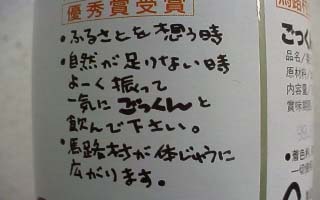 優秀賞受賞
・ふるさとを想う時
・自然が足りない時
よーく振って
一気にごっくんと
飲んで下さい。
・馬路村が体じゅうに
広がります。
馬路村
ごっく
品名/
原材料/
内容量/
賞味期限
●着色料、
一切使